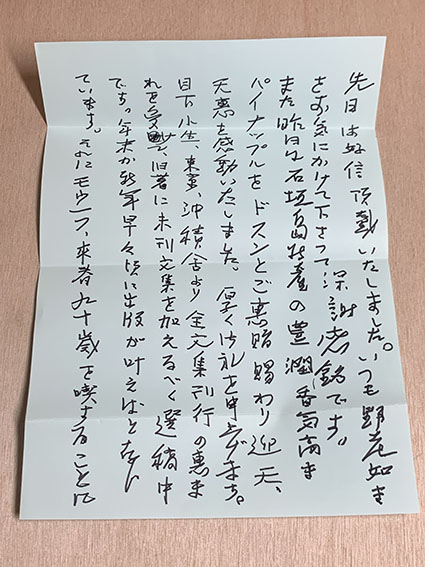 先日は好信頂戴いたしました。いつも野老如き
をお気にかけて下さって深謝老銘です。
また昨日は石垣島特産の豊潤香気高き
パイナップルをドスンとご恵贈賜わり迎天、
天恵を感動いたしました。厚く御礼を申上げます。
目下小生、東京、沖積舎より全文集刊行の恵ま
れを受け、旧著に未刊文集を加えるべく選稿中
です。年末か新年早々頃に出版が叶えばとねがっ
ています。それにモウ一つ、来春九十歳を喫することに